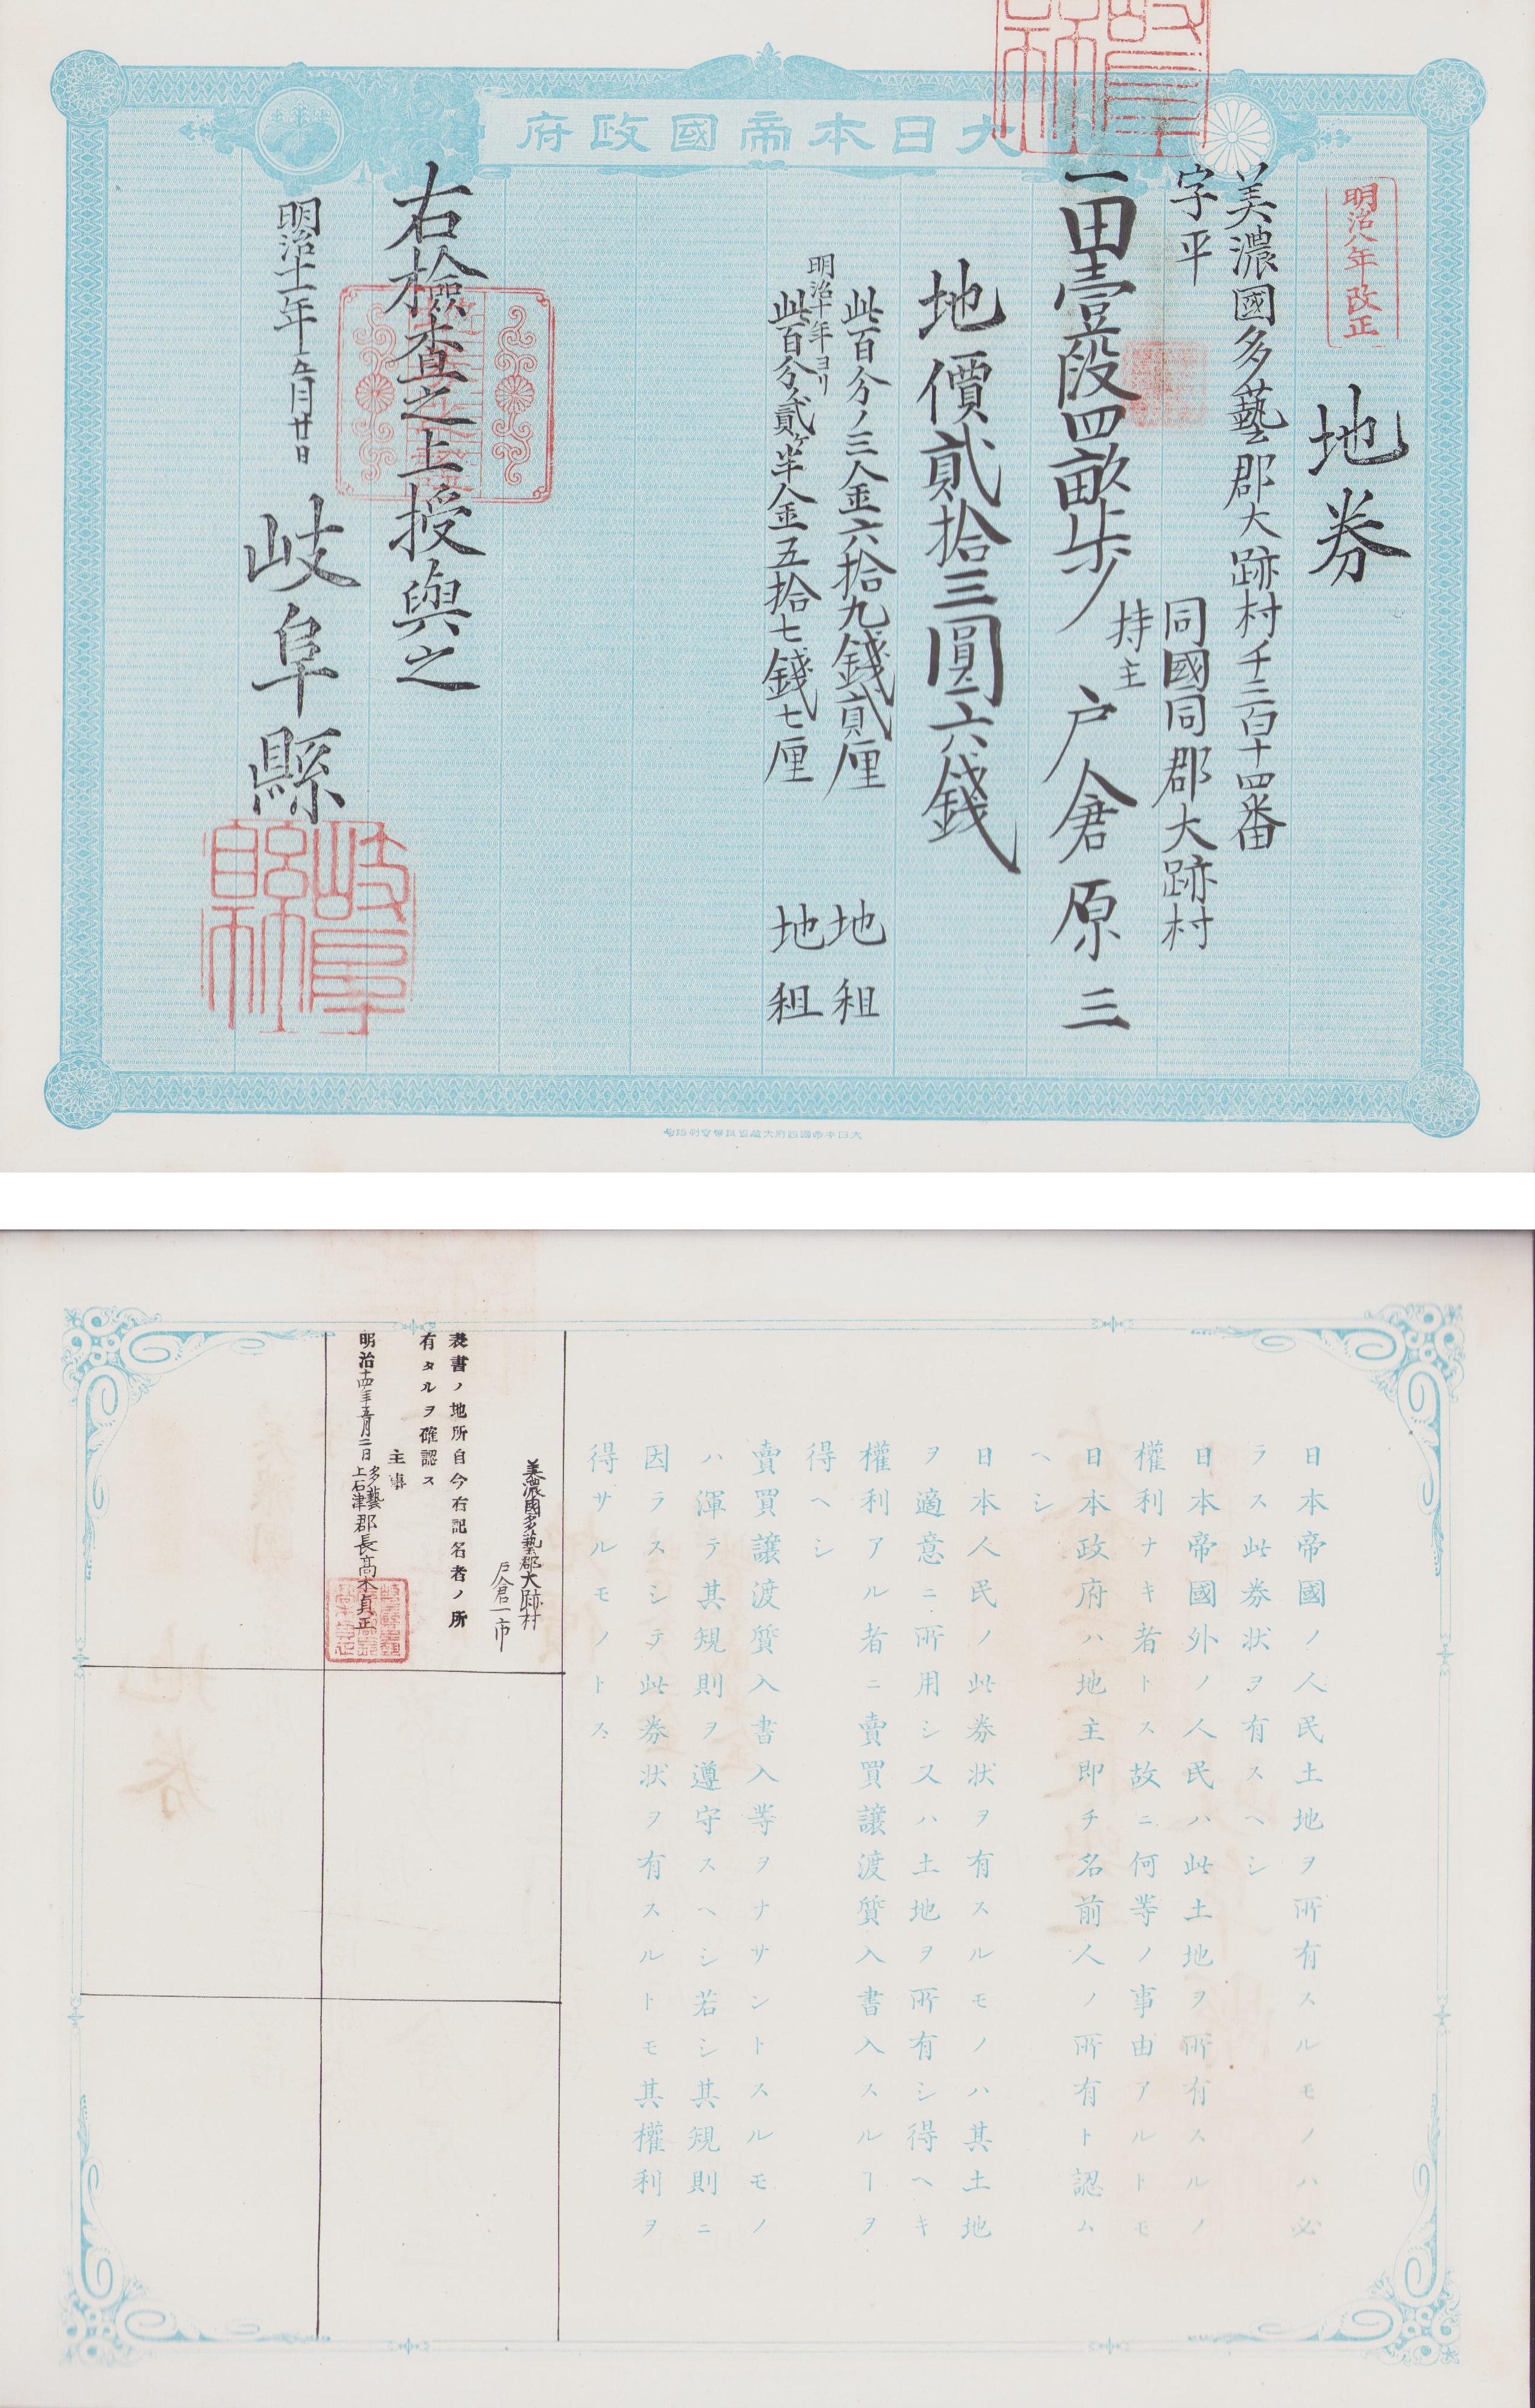 大日本帝國政府
明治八年改正
地券
美濃國多藝郡大跡村千三百十四番
字平
同國同郡大跡村
一田壹段四畝歩
持主 戸倉原三
地價貳拾三圓六錢
此百分ノ三金六拾九錢貳厘 地租
明治十年ヨリ
此百分ノ貳ケ半金五拾七錢七厘 地租
右檢査之上授與之
明治十一年五月廿日
岐阜縣
岐阜縣
日本帝國ノ人民土地ヲ所有スルモノハ必
ラス此券状ヲ有スヘシ
日本帝國外ノ人民ハ此土地ヲ所有スルノ
權利ナキ者トス故ニ何等ノ事由アルトモ
日本政府ハ地主即チ名前人ノ所有ト認ム
ヘシ
日本人民ノ此券状ヲ有スルモノハ其土地
ヲ適意ニ所用シ又ハ土地ヲ所有シ得ヘキ
權利アル者ニ賣買讓渡質入書入スルヿヲ
得ヘシ
賣買讓渡質入書入等ヲナサントスルモノ
ハ渾テ其規則ヲ遵守スヘシ若シ其規則ニ
因ラスシテ此券状ヲ有スルトモ其權利ヲ
得サルモノトス
美濃國多藝郡大跡村
戸倉一市
表書ノ地所自今右記名者ノ所
有タルヲ確認ス
主事
明治十四年五月二日
多藝
上石津
郡長高木貞正